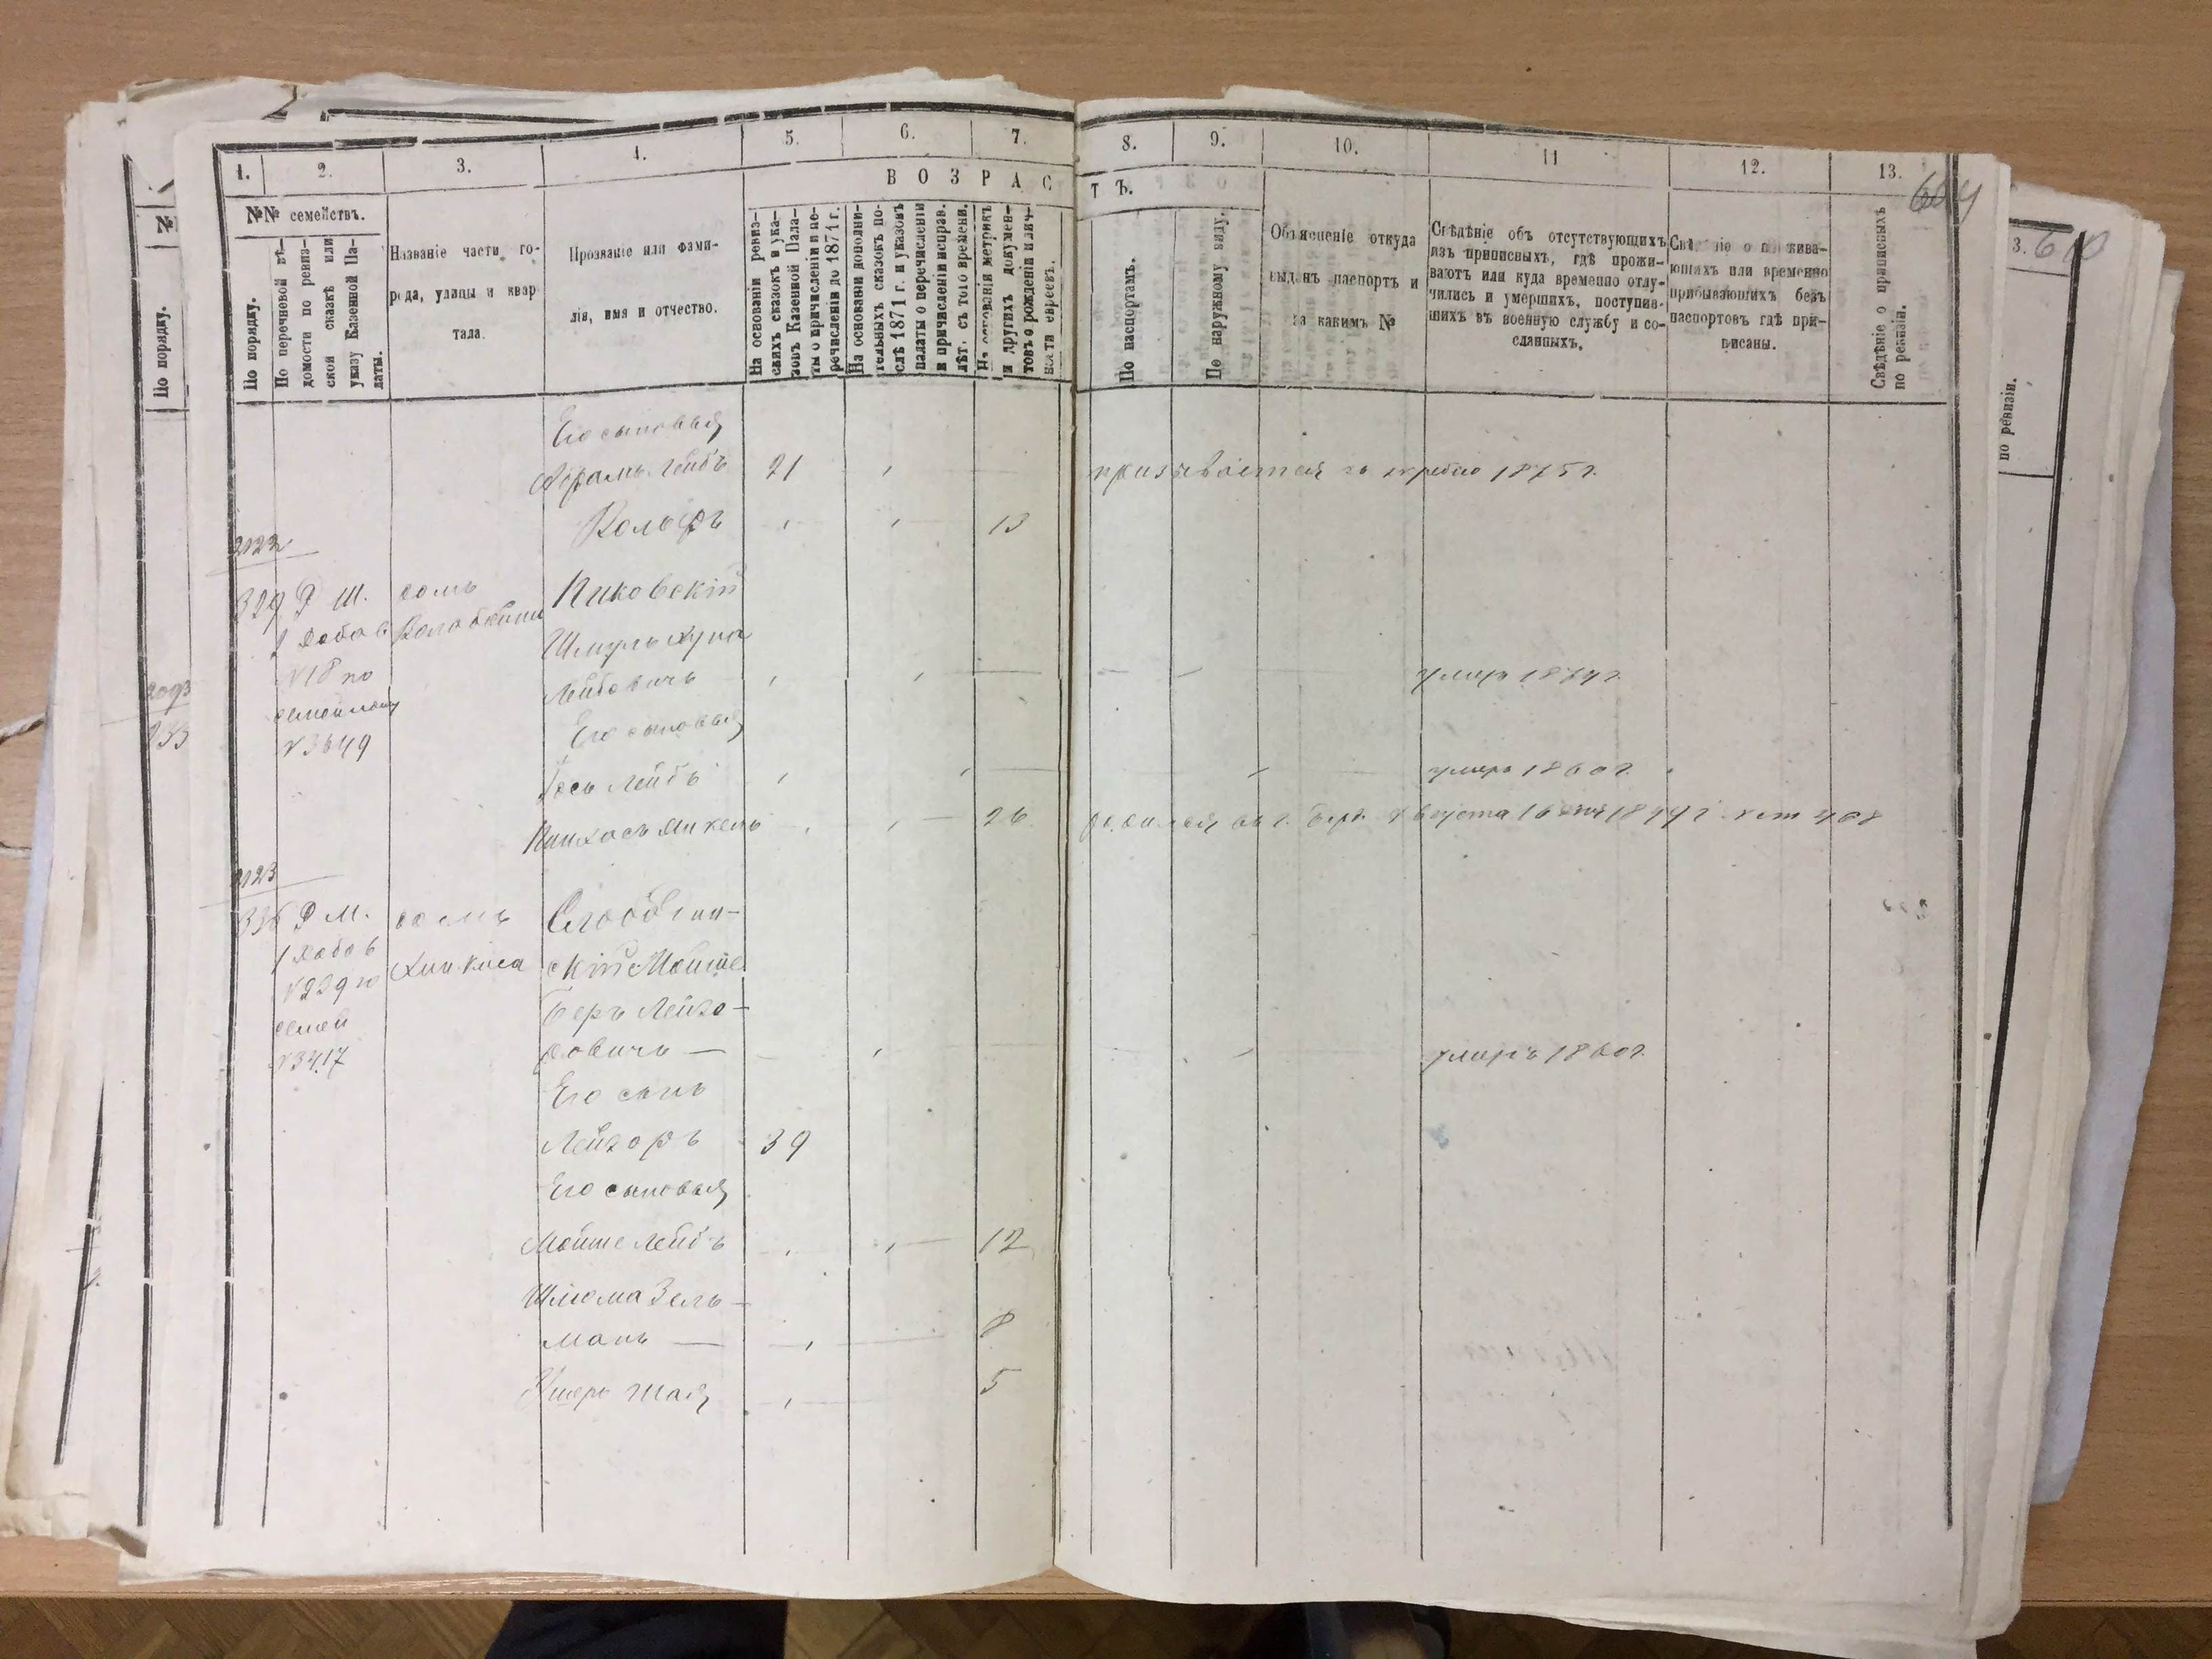 1.
2.
3.
4.
5.
6.
7.
8.
9.
10.
11
12.
13.
604
ВОЗРАС
ТЪ.
№№ семействъ.
По порядку.
По перечневой вѣ-
домости по ревиз-
ской сказкѣ или
указу Казенной Па-
латы.
Названіе части го-
рода, улицы и квар
тала.
Прозваніе или фами-
лія, имя и отчество.
На основаніи ревиз-
скихъ сказокъ и ука-
зовъ Казенной Пала-
ты о причисленіи и пе-
речисленіи до 1871 г.
На основаніи дополни-
тельныхъ сказокъ по-
слѣ 1871 г. и указовъ
палаты о перечисленіи
и причисленіи исправ.
лѣт. съ того времени.
На основаніи метрикъ
и другихъ докумен-
товъ о рожденіи и лич-
наго евреевъ.
По паспортамъ.
По наружному виду.
Объясненіе откуда
выданъ паспортъ и
за какимъ №
Свѣдѣніе объ отсутствующихъ
изъ приписныхъ, гдѣ прожи-
ваютъ или куда временно отлу-
чились и умершихъ, поступив-
шихъ въ военную службу и со-
сланныхъ.
Свѣдѣніе о прожива-
ющихъ или временно
прибывающихъ безъ
паспортовъ гдѣ при-
писаны.
Свѣдѣніе о приписныхъ
по ревизіи.
Его сыновья
Абрамъ Лейбъ 21 призывается въ 1875 г.
Вольфъ 13
2122
329 домъ Пиковскій
Шмуль
№18 по Лейбовичъ умеръ 1874 г.
семейному Его сыновья
№3649
Іось Лейбъ умеръ 1860 г.
Пинхасъ Михель 26 родился въ г. Августа 16 дня 1849 г. 468
2123
домъ Слободян-
скій Мойше
№239 по
Беръ Лейзо-
семей
ровичъ умеръ 1860 г.
№3417
Его сынъ
Лейзоръ 39
Его сыновья
Мойше Лейбъ 12
Шлюма Зель-
манъ 8
Ушеръ Шая 5
№
По порядку.
3.
по ревизіи.